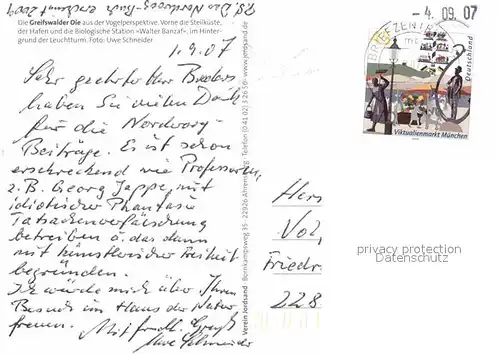 Die Greifswalder Oie aus der Vogelperspektive. Vorne die Steilküste,
der Hafen und die Biologische Station »Walter Banzaf«, im Hinter-
grund der Leuchtturm. Foto: Uwe Schneider
1.9.07
Sehr geehrter Herr
haben Sie vielen Dank
für die
Beiträge. Es ist schon
erschreckend wie Professoren,
z.B. Georg Jappe, mit
idiotischer Phantasie
Tatsachenverfälschung
betreiben u. das dann
mit künstlerischer Freiheit
begründen.
Ich würde mich über Ihren
Besuch im Haus der Natur
freuen. Mit frdl. Gruß
Uwe Schneider
P.S. Das
Verein Jordsand Bornkampsweg 35 · 22926 Ahrensburg · Telefon (04102) 3 26 56 · www.jordsand.de
- 4. 09. 07
BRIEFZENTRUM
Deutschland
Viktualienmarkt München
Herr
Vol
Friedr
228
privacy protection
Datenschutz